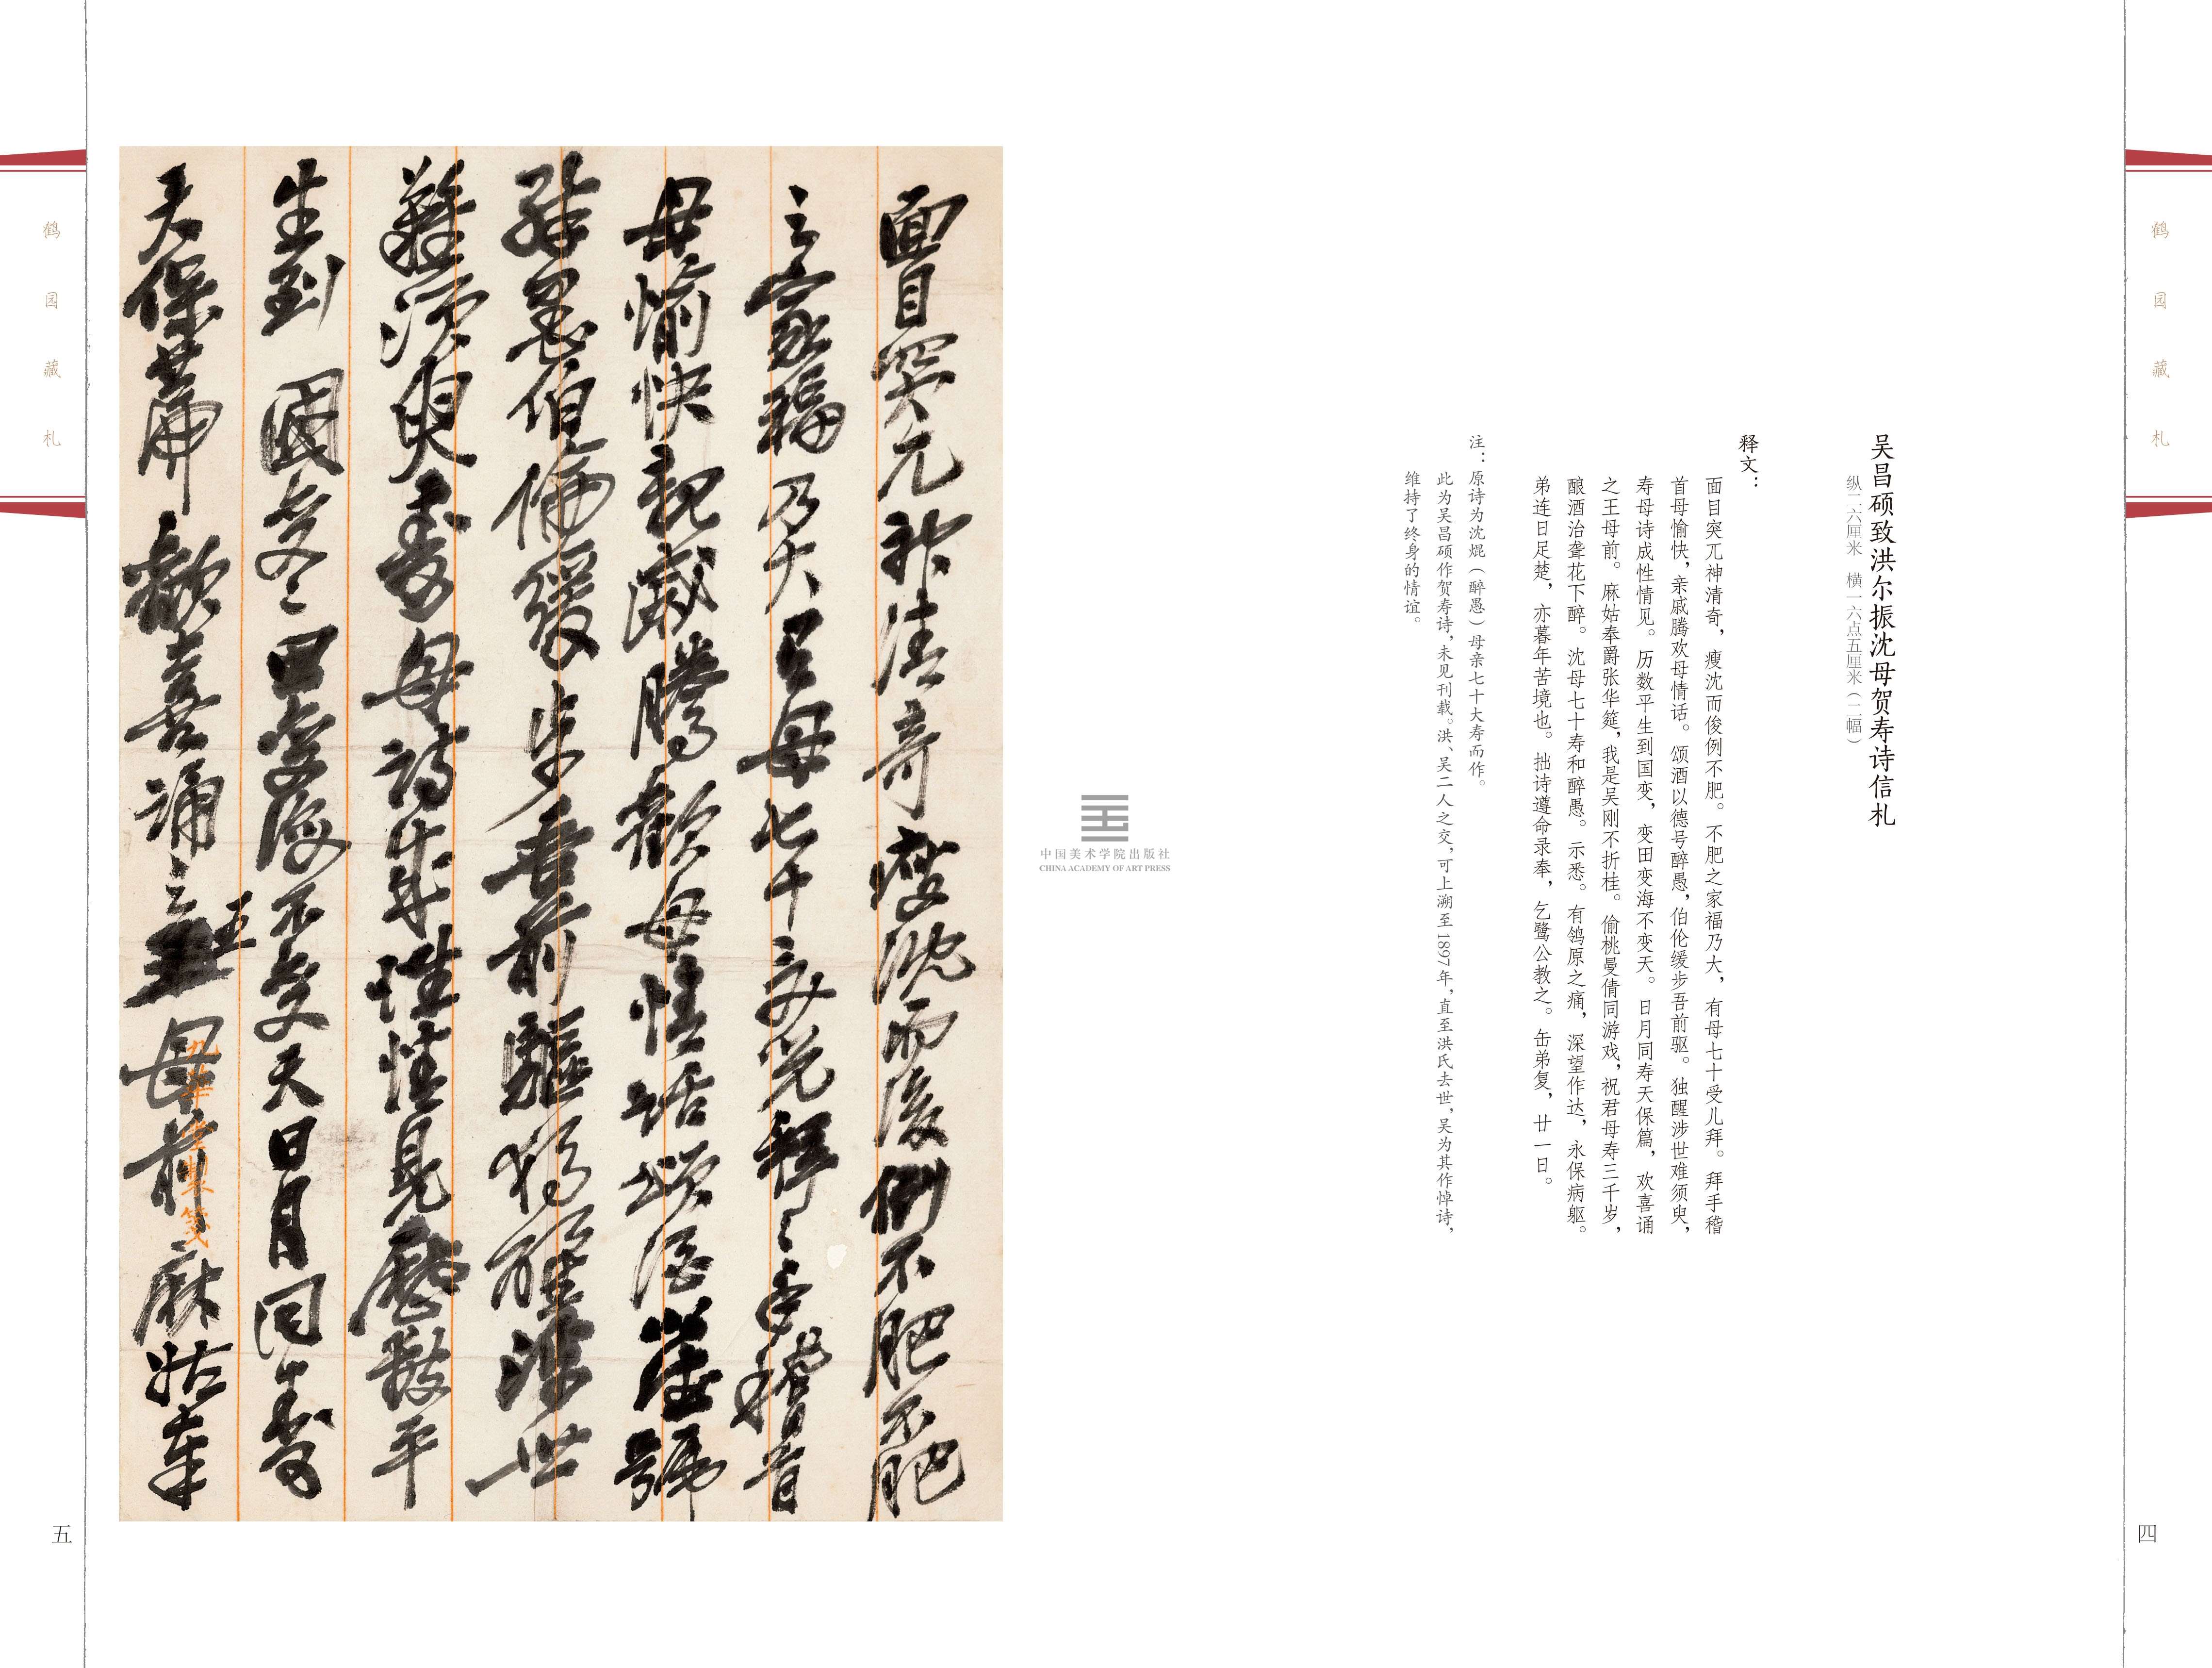 鹤园藏札
四
吴昌硕致洪尔振沈母贺寿诗信札
纵二六厘米 横一六点五厘米（二幅）
释文：
面目突兀神清奇，瘦沈而俊例不肥。不肥之家福乃大，有母七十受儿拜。拜手稽
首母愉快，亲戚腾欢母情话。颂酒以德号醉愚，伯伦缓步吾前驱。独醒涉世难须臾，
寿母诗成性情见。历数平生到国变，变田变海不变天。日月同寿天保篇，欢喜诵
之王母前。麻姑奉爵张华筵，我是吴刚不折桂。偷桃曼倩同游戏，祝君母寿三千岁，
酿酒治聋花下醉。沈母七十寿和醉愚。示悉。有鸰原之痛，深望作达，永保病躯。
弟连日足楚，亦暮年苦境也。拙诗遵命录奉，乞鹭公教之。缶弟复，廿一日。
注：原诗为沈焜（醉愚）母亲七十大寿而作。
此为吴昌硕作贺寿诗，未见刊载。洪、吴二人之交，可上溯至1897年，直至洪氏去世，吴为其作悼诗，
维持了终身的情谊。
中国美术学院出版社
CHINA ACADEMY OF ART PRESS
面目突兀神清奇瘦沈而俊例不肥不肥
之家福乃大有母七十受儿拜〻手稽首
母愉快親戚騰歡母情話頌酒以德號
醉愚伯倫緩步吾前驅獨醒涉世
難須臾壽母詩成性情見歷數平
生到國變〻田變海不變天日月同壽
天保篇歡喜誦之王母前麻姑奉
九華堂製箋
鹤园藏札
五